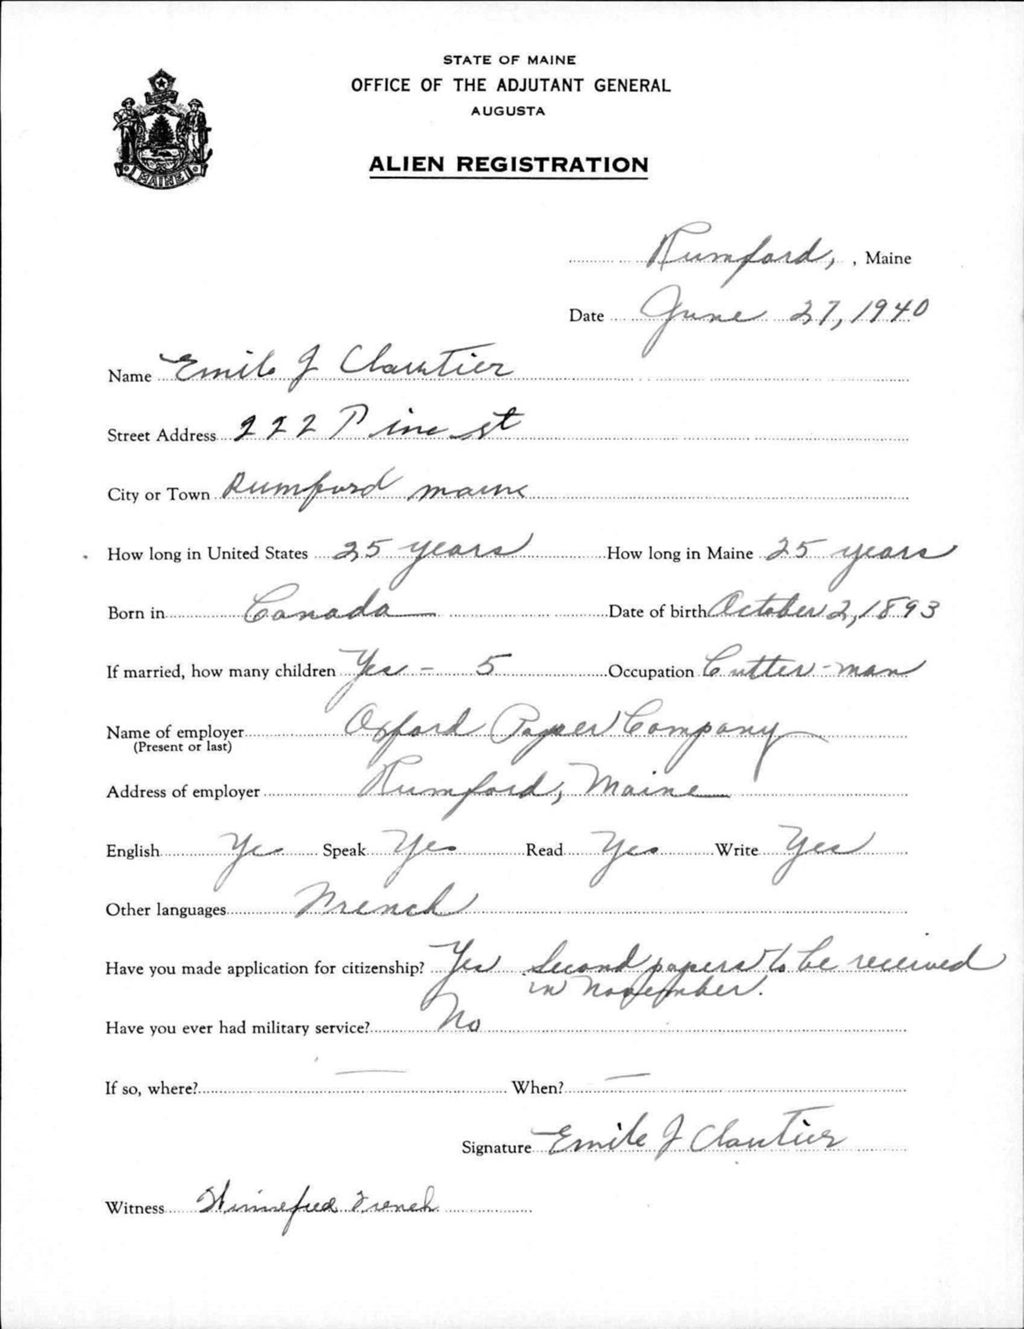 STATE OF MAINE
OFFICE OF THE ADJUTANT GENERAL
AUGUSTA
MAINE
ALIEN REGISTRATION
Rumford, , Maine
Date June 27, 1940
Name Emile J Cloutier
Street Address 222 Pine st
City or Town Rumford maine
How long in United States 25 years How long in Maine 25 years
Born in Canada Date of birth October 2, 1893
If married, how many children Yes - 5 Occupation Cutter-man
Name of employer Oxford Paper Company
(Present or last)
Address of employer Rumford, Maine
English Yes Speak Yes Read Yes Write Yes
Other languages French
Have you made application for citizenship? Yes Second papers to be received
in November.
Have you ever had military service? No
If so, where? — When? —
Signature Emile J Cloutier
Witness Winnefred French